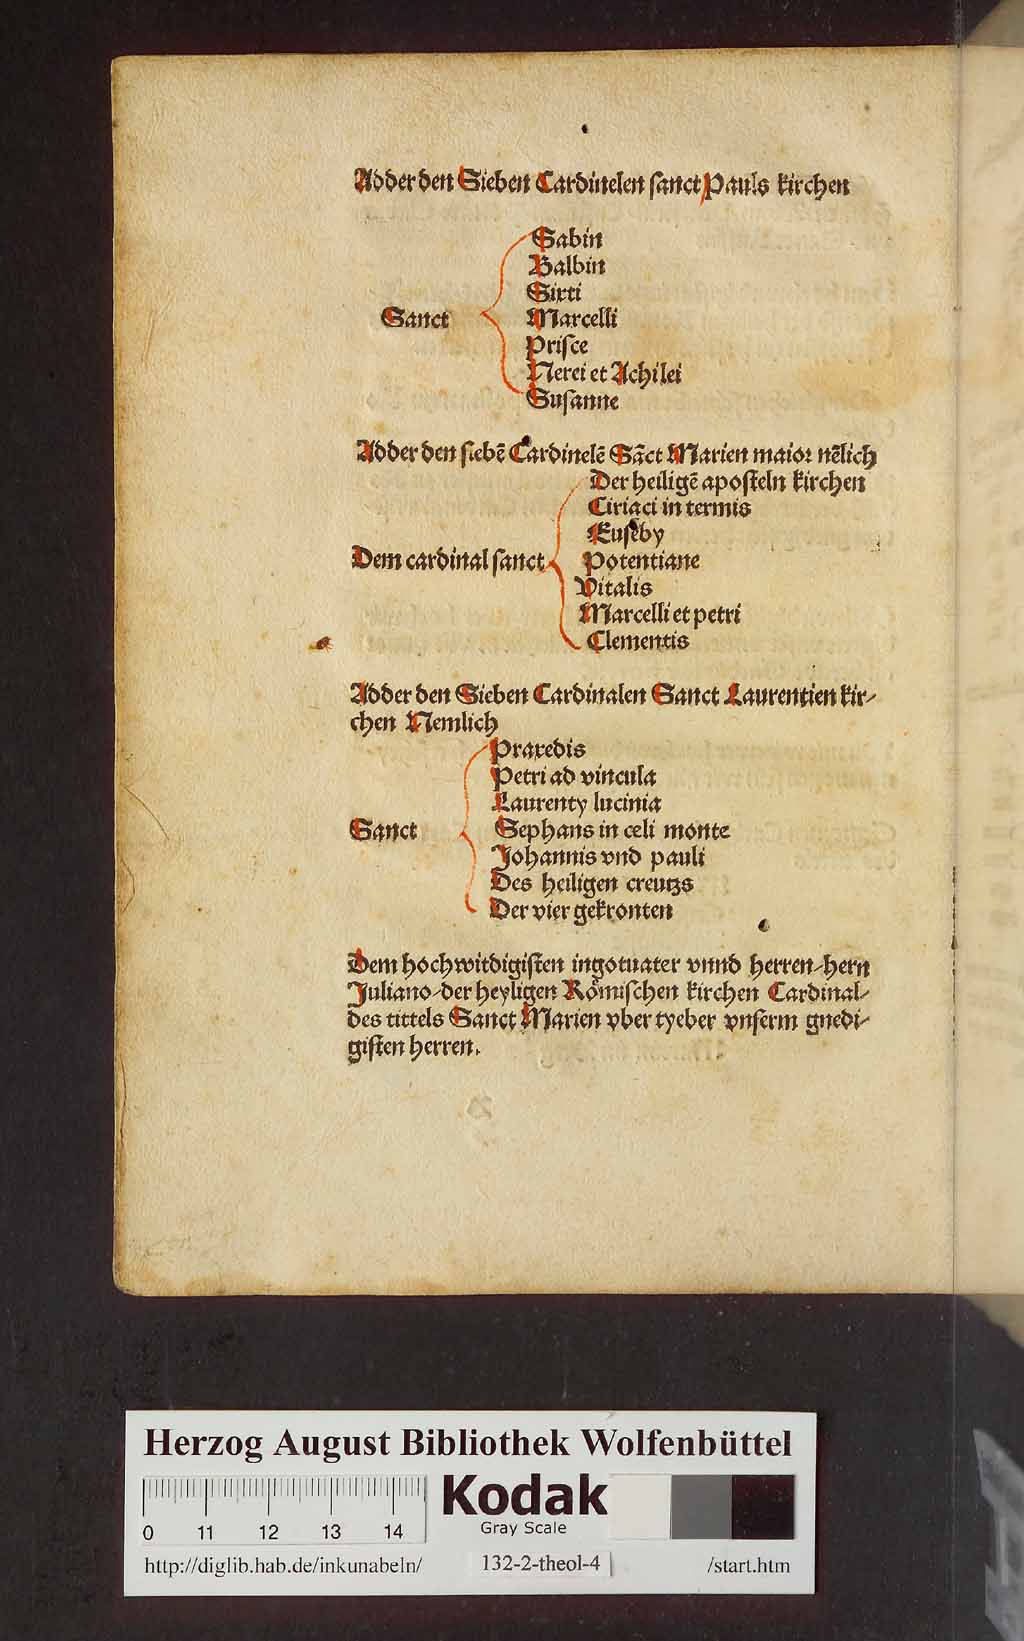 Adder den Sieben Cardinelen ſanct Pauls kirchen
Sabin
Balbin
Sixti
Sanct
Marcelli
Priſce
Nerei et Achilei
Suſanne
Adder den ſiebē Cardinelē Sāct Marien maior nēlich
Der heiligē apoſteln kirchen
Ciriaci in termis
Euſeby
Dem cardinal ſanct
Potentiane
Vitalis
Marcelli et petri
Clementis
Adder den Sieben Cardinalen Sanct Laurentien kir⸗
chen Nemlich
Praxedis
Petri ad vincula
Laurenty lucinia
Sanct
Sephans in celi monte
Johannis vnd pauli
Des heiligen creutzs
Der vier gekronten
Dem hochwitdigiſten ingotuater vnnd herren⸗hern
Juliano⸗der heyligen Römiſchen kirchen Cardinal⸗
des tittels Sanct Marien vber tyeber vnſerm gnedi⸗
giſten herren.
Herzog August Bibliothek Wolfenbüttel
Kodak
Gray Scale
0 11 12 13 14
http://diglib.hab.de/inkunabeln/ 132-2-theol-4 /start.htm